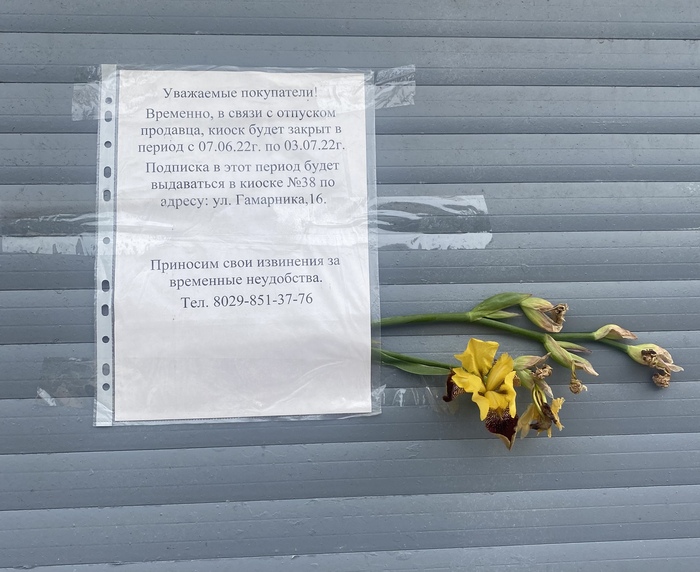 Уважаемые покупатели!
Временно, в связи с отпуском
продавца, киоск будет закрыт в
период с 07.06.22г. по 03.07.22г.
Подписка в этот период будет
выдаваться в киоске №38 по
адресу: ул. Гамарника,16.
Приносим свои извинения за
временные неудобства.
Тел. 8029-851-37-76